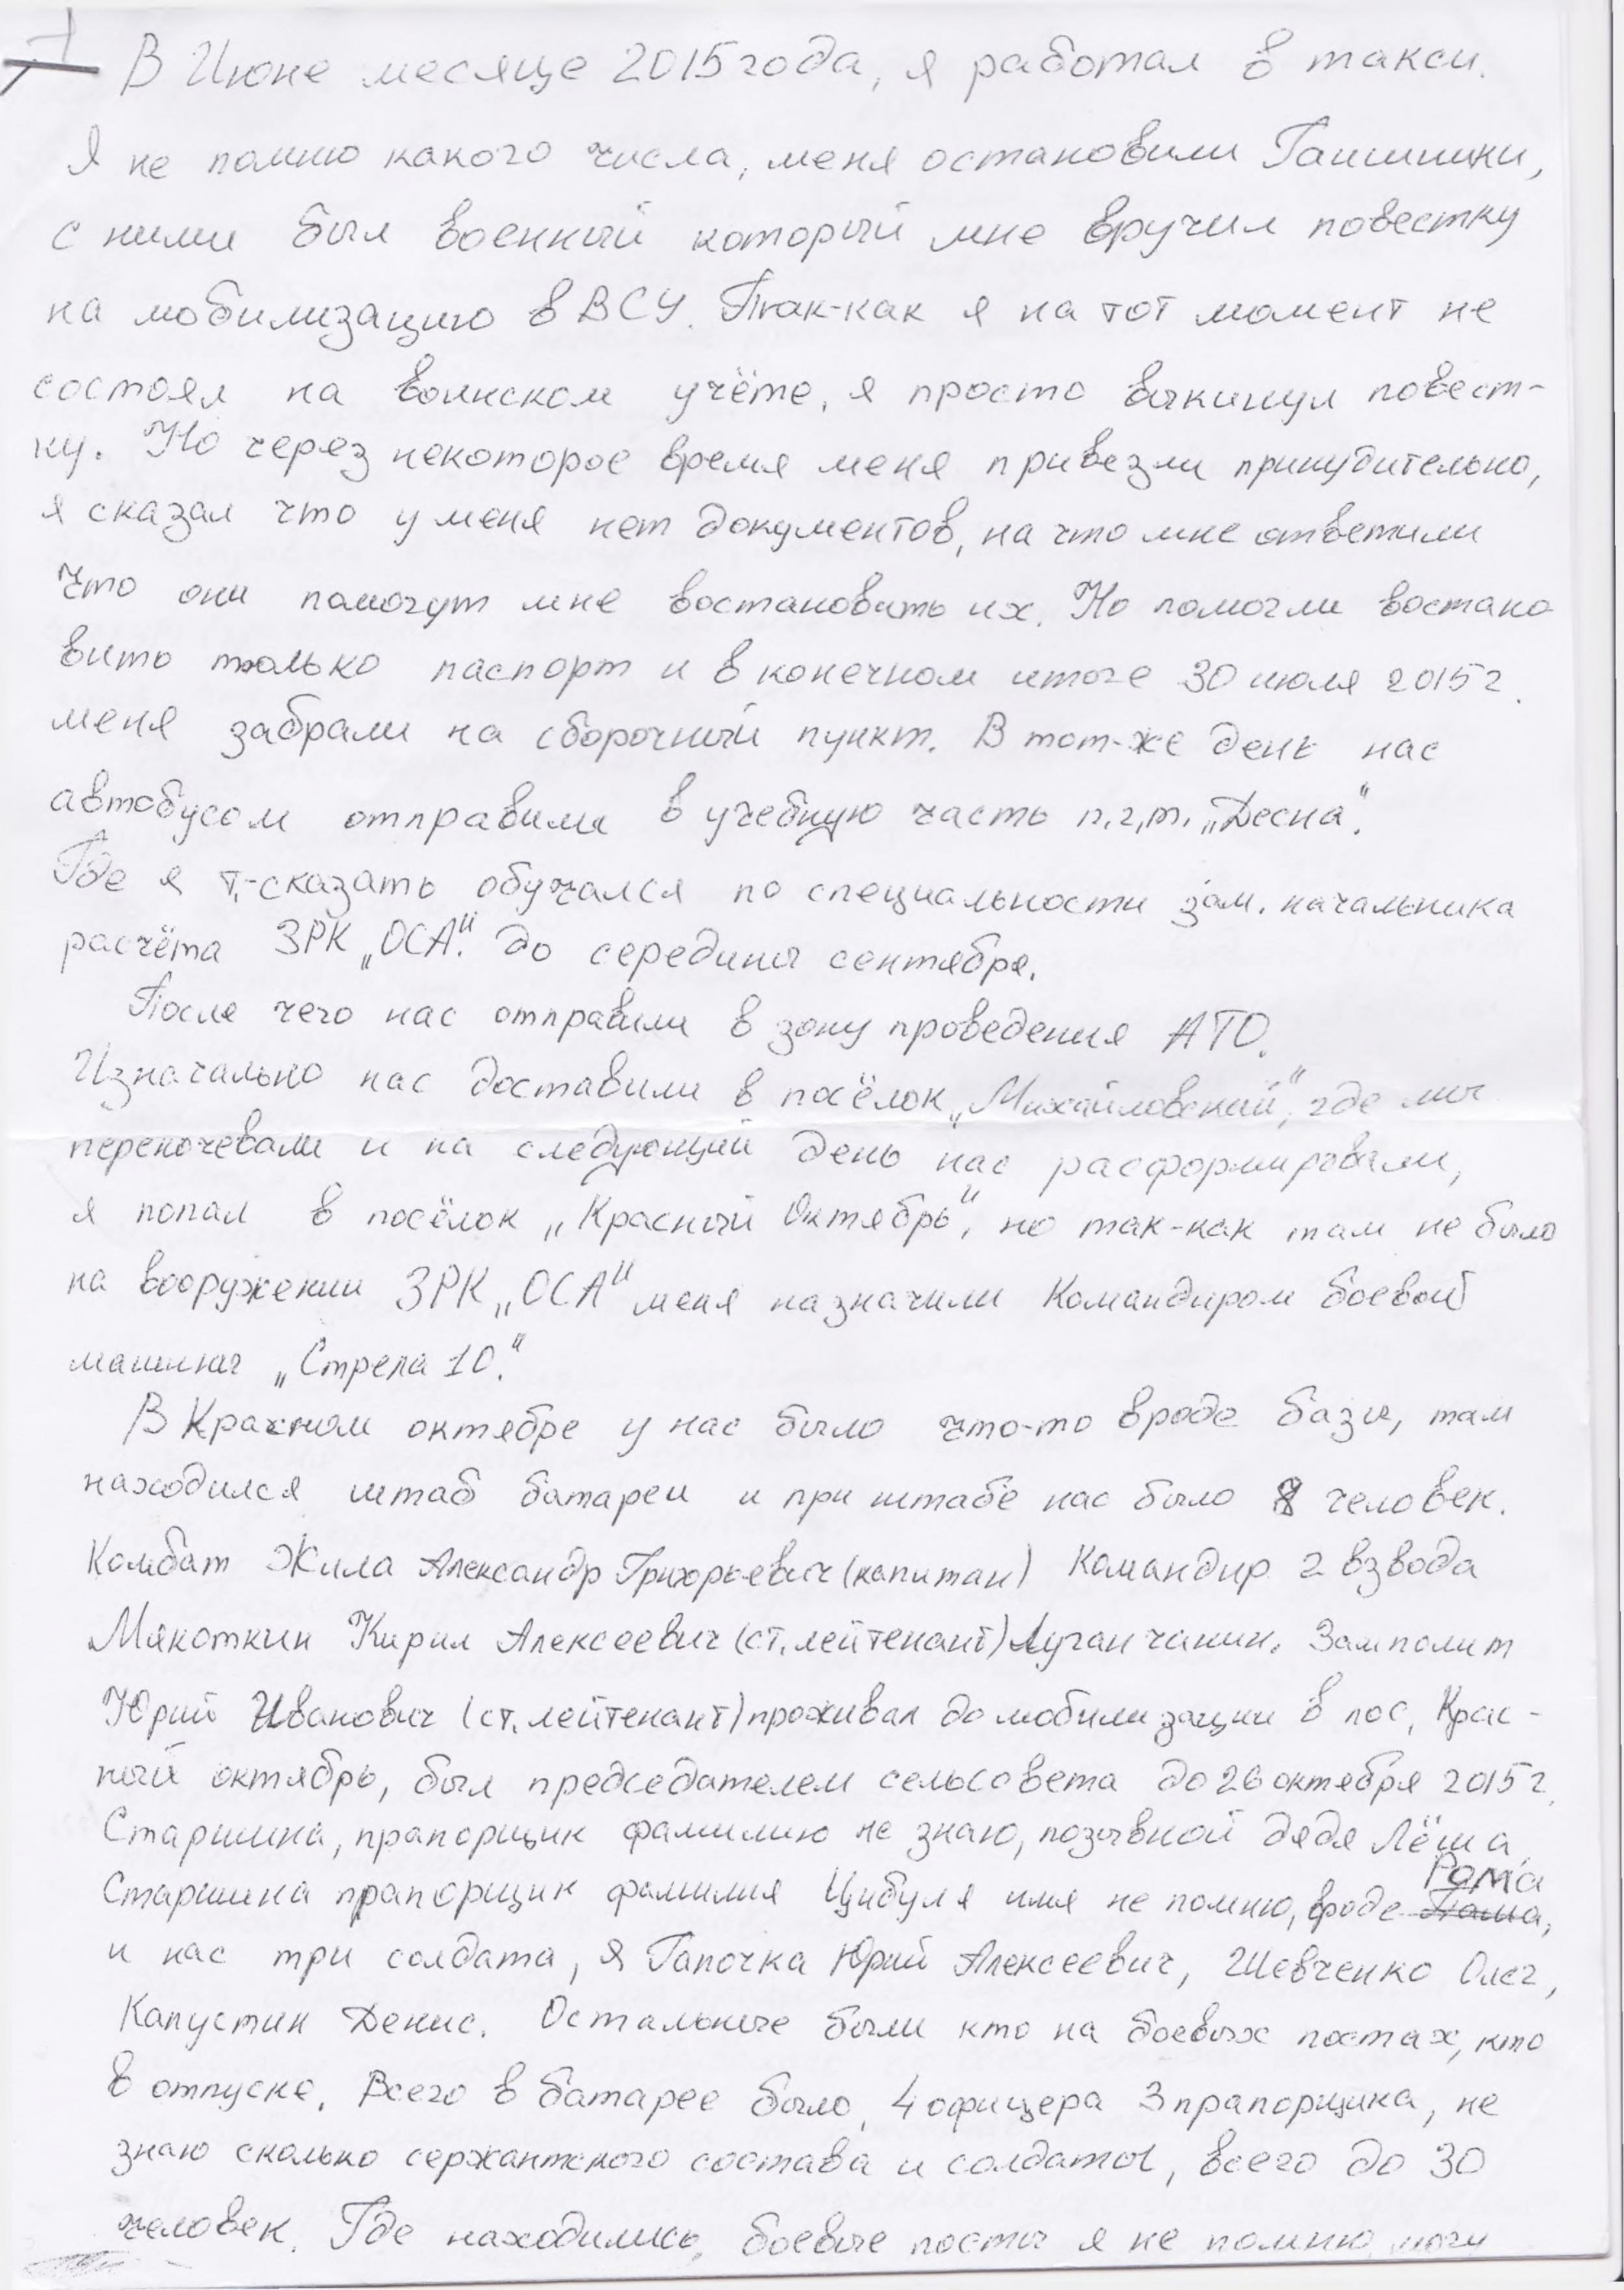 1
В Июне месяце 2015 года, я работал в такси.
Я не помню какого числа, меня остановили Гаишники,
с ними был военный который мне вручил повестку
на мобилизацию в ВСУ. Так-как я на тот момент не
состоял на воинском учёте, я просто выкинул повест-
ку. Но через некоторое время меня привезли принудительно,
я сказал что у меня нет документов, на что мне ответили
что они помогут мне востановить их. Но помогли востано
вить только паспорт и в конечном итоге 30 июля 2015 г.
меня забрали на сборочный пункт. В тот-же день нас
автобусом отправили в учебную часть п.г.т. „Десна".
Где я т.-сказать обучался по специальности зам. начальника
расчёта ЗРК „ОСА". до середины сентября.
После чего нас отправили в зону проведения АТО.
Изначально нас доставили в посёлок „Михайловский", где мы
переночевали и на следующий день нас расформировали,
я попал в посёлок „Красный Октябрь", но так-как там не было
на вооружении ЗРК „ОСА" меня назначили Командиром боевой
машины „Стрела 10."
В Красном октябре у нас было что-то вроде базы, там
находился штаб батареи и при штабе нас было 8 человек.
Комбат Жила Александр Григорьевич (капитан) Командир 2 взвода
Мякоткин Кирил Алексеевич (ст. лейтенант) Луганчанин. Замполит
Юрий Иванович (ст. лейтенант) проживал до мобилизации в пос. Крас-
ный октябрь, был председателем сельсовета до 26 октября 2015 г.
Старшина, прапорщик фамилию не знаю, позывной дядя Лёша
Старшина прапорщик фамилия Цибуля имя не помню, вроде Рома
и нас три солдата, я Гапочка Юрий Алексеевич, Шевченко Олег,
Капустин Денис. Остальные были кто на боевых постах, кто
в отпуске. Всего в батарее было, 4 офицера 3 прапорщика, не
знаю сколько сержантского состава и солдаты, всего до 30
человек. Где находились боевые посты я не помню, могу